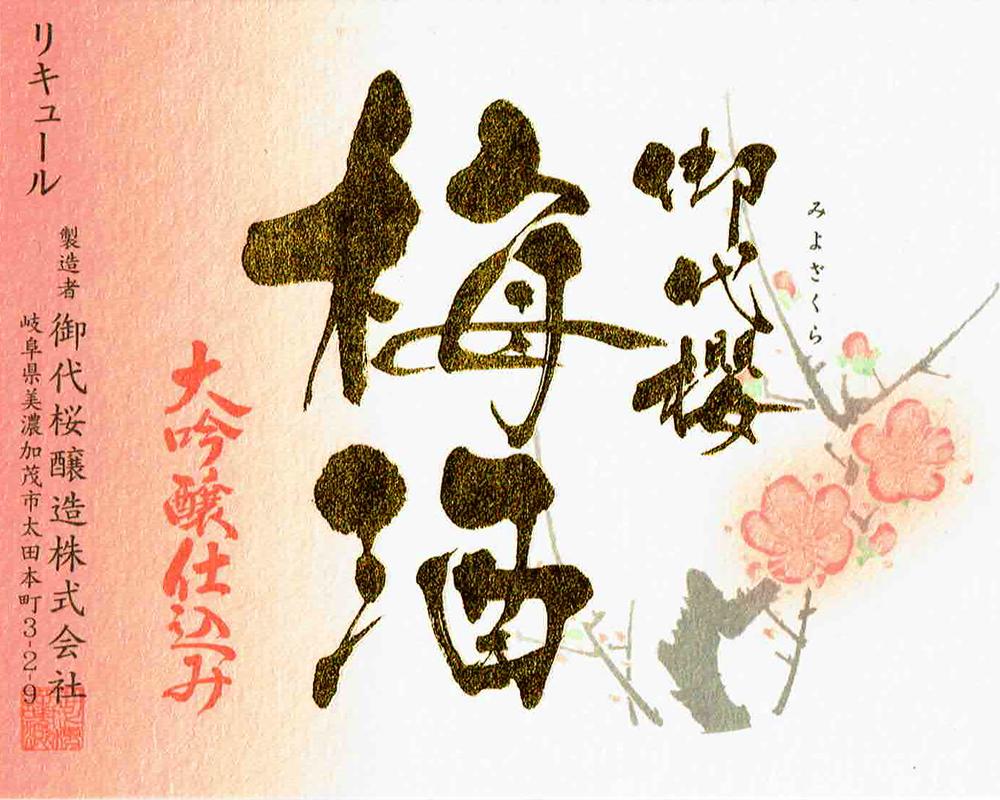 みよざくら
御代櫻
梅酒
大吟醸仕込み
リキュール
製造者 御代桜醸造株式会社
岐阜県美濃加茂市太田本町3-2-9